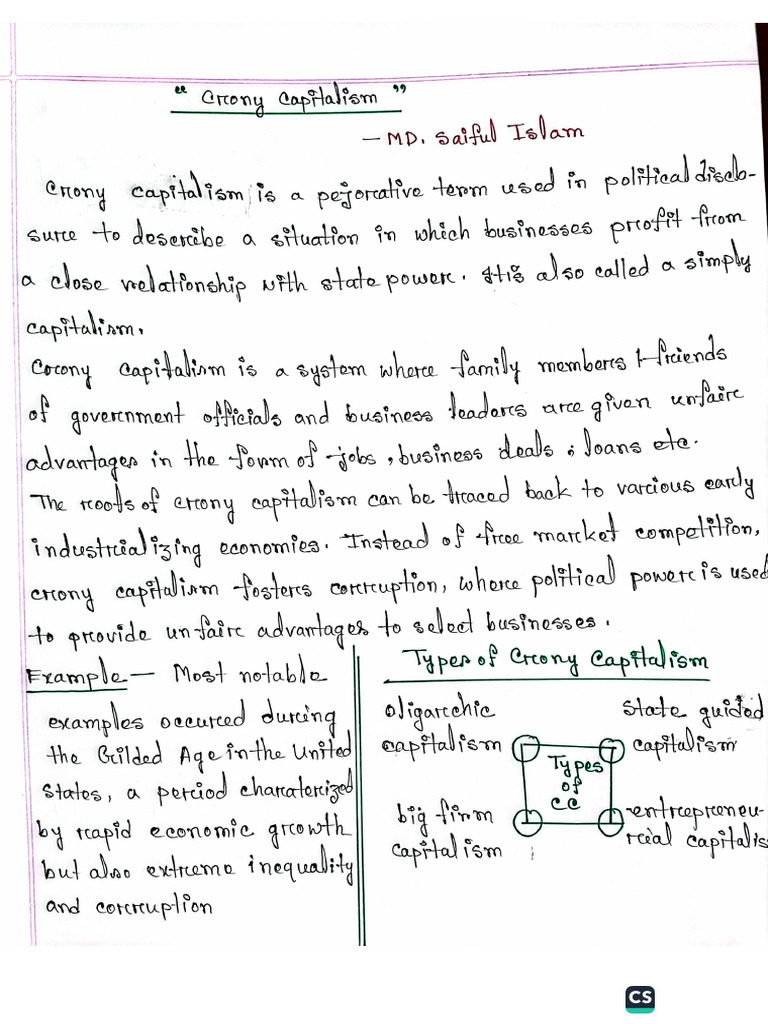 “ Crony Capitalism ”
— MD. Saiful Islam
Crony capitalism is a pejorative term used in political disclo-
sure to describe a situation in which businesses profit from
a close relationship with state power. It is also called a simply
capitalism.
Crony capitalism is a system where family members & friends
of government officials and business leaders are given unfair
advantages in the form of jobs, business deals, loans etc.
The roots of crony capitalism can be traced back to various early
industrializing economies. Instead of free market competition,
crony capitalism fosters corruption, where political power is used
to provide unfair advantages to select businesses.
Example — Most notable
examples occured during
the Gilded Age in the United
States, a period charaterized
by rapid economic growth
but also extreme inequality
and corruption
Types of Crony Capitalism
oligarchic
capitalism
state guided
capitalism
Types
of
CC
big firm
capitalism
entrepreneu-
rial capitalis
CS